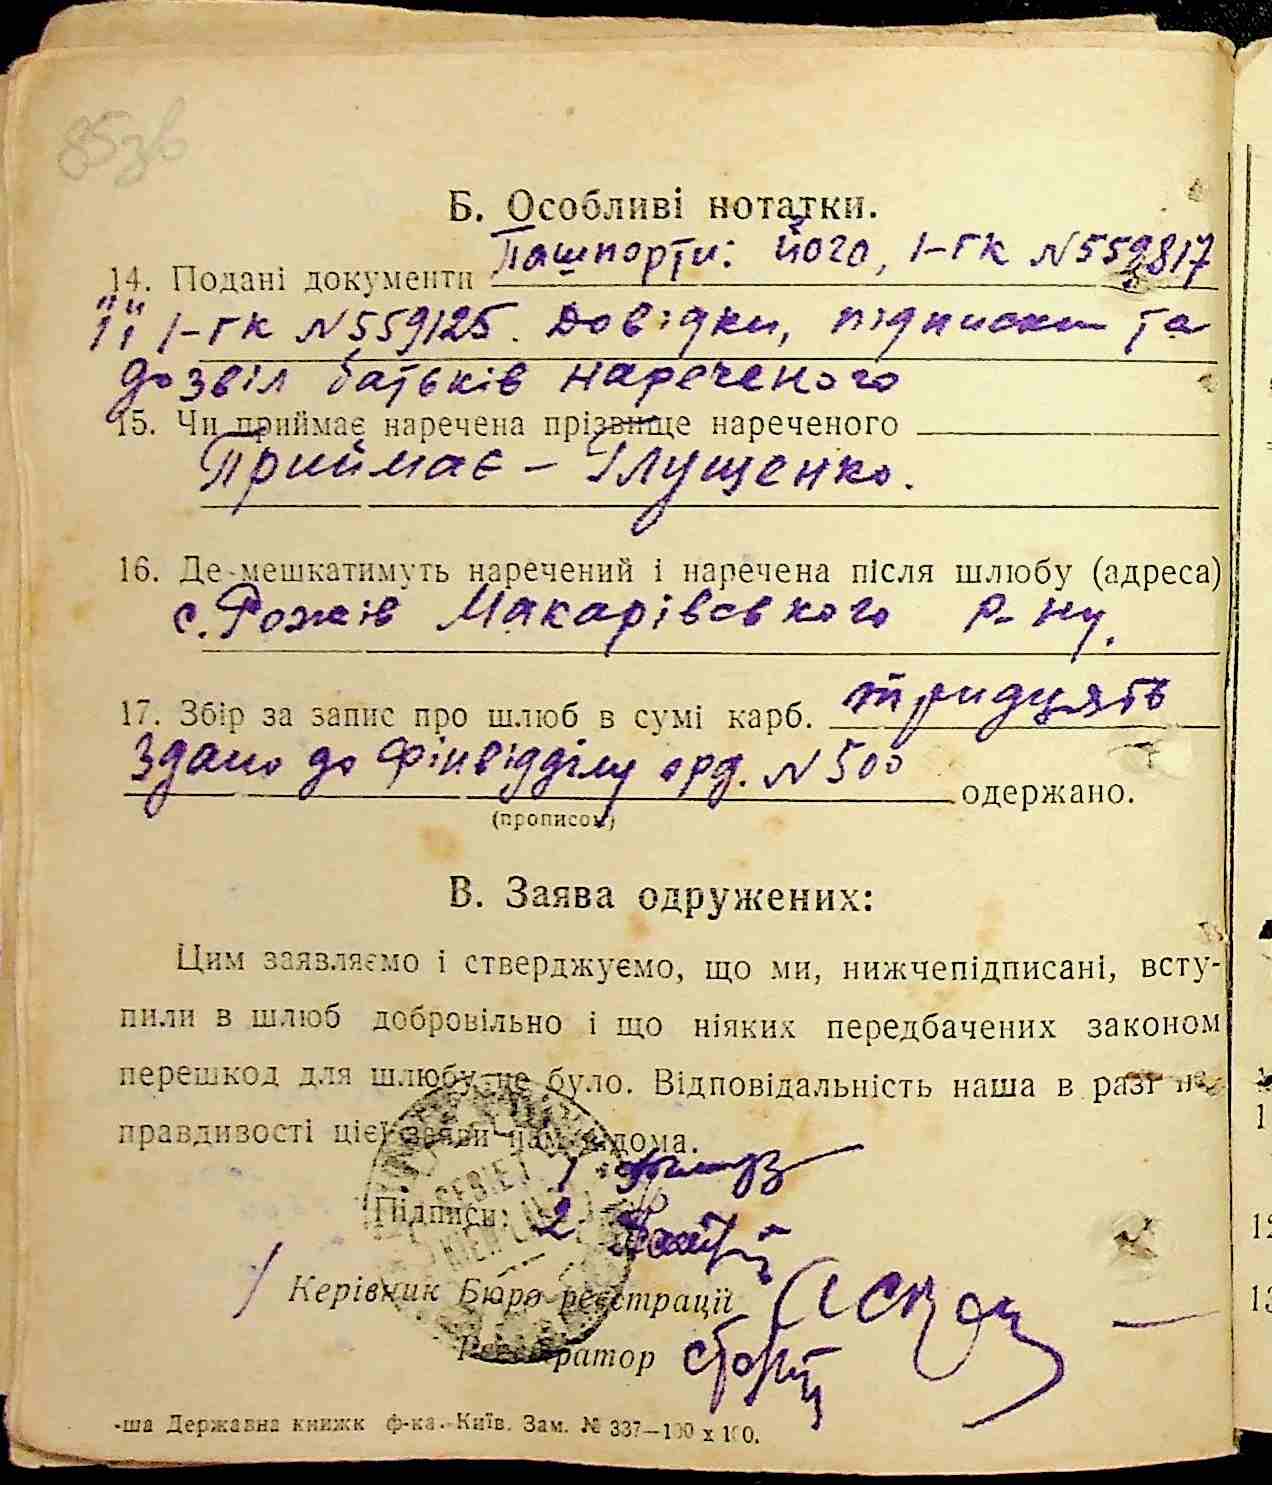 85зв
Б. Особливі нотатки.
14. Подані документи Пашпорти: його, І-ГК №559817
її І-ГК №559125. Довідки, підписки та
дозвіл батьків нареченого
15. Чи приймає наречена прізвище нареченого
Приймає – Глущенко.
16. Де мешкатимуть наречений і наречена після шлюбу (адреса)
с. Рожів Макарівського р-ну.
17. Збір за запис про шлюб в сумі карб. тридцять
Здано до фінвідділу орд. №500 одержано.
(прописом)
В. Заява одружених:
Цим заявляємо і стверджуємо, що ми, нижчепідписані, всту-
пили в шлюб добровільно і що ніяких передбачених законом
перешкод для шлюбу не було. Відповідальність наша в разі не-
правдивості цієї заяви нам відома.
1
Підписи: 2.
Керівник Бюро реєстрації
Реєстратор
-ша Державна книжк ф-ка. Київ. Зам. № 337—100 х 100.